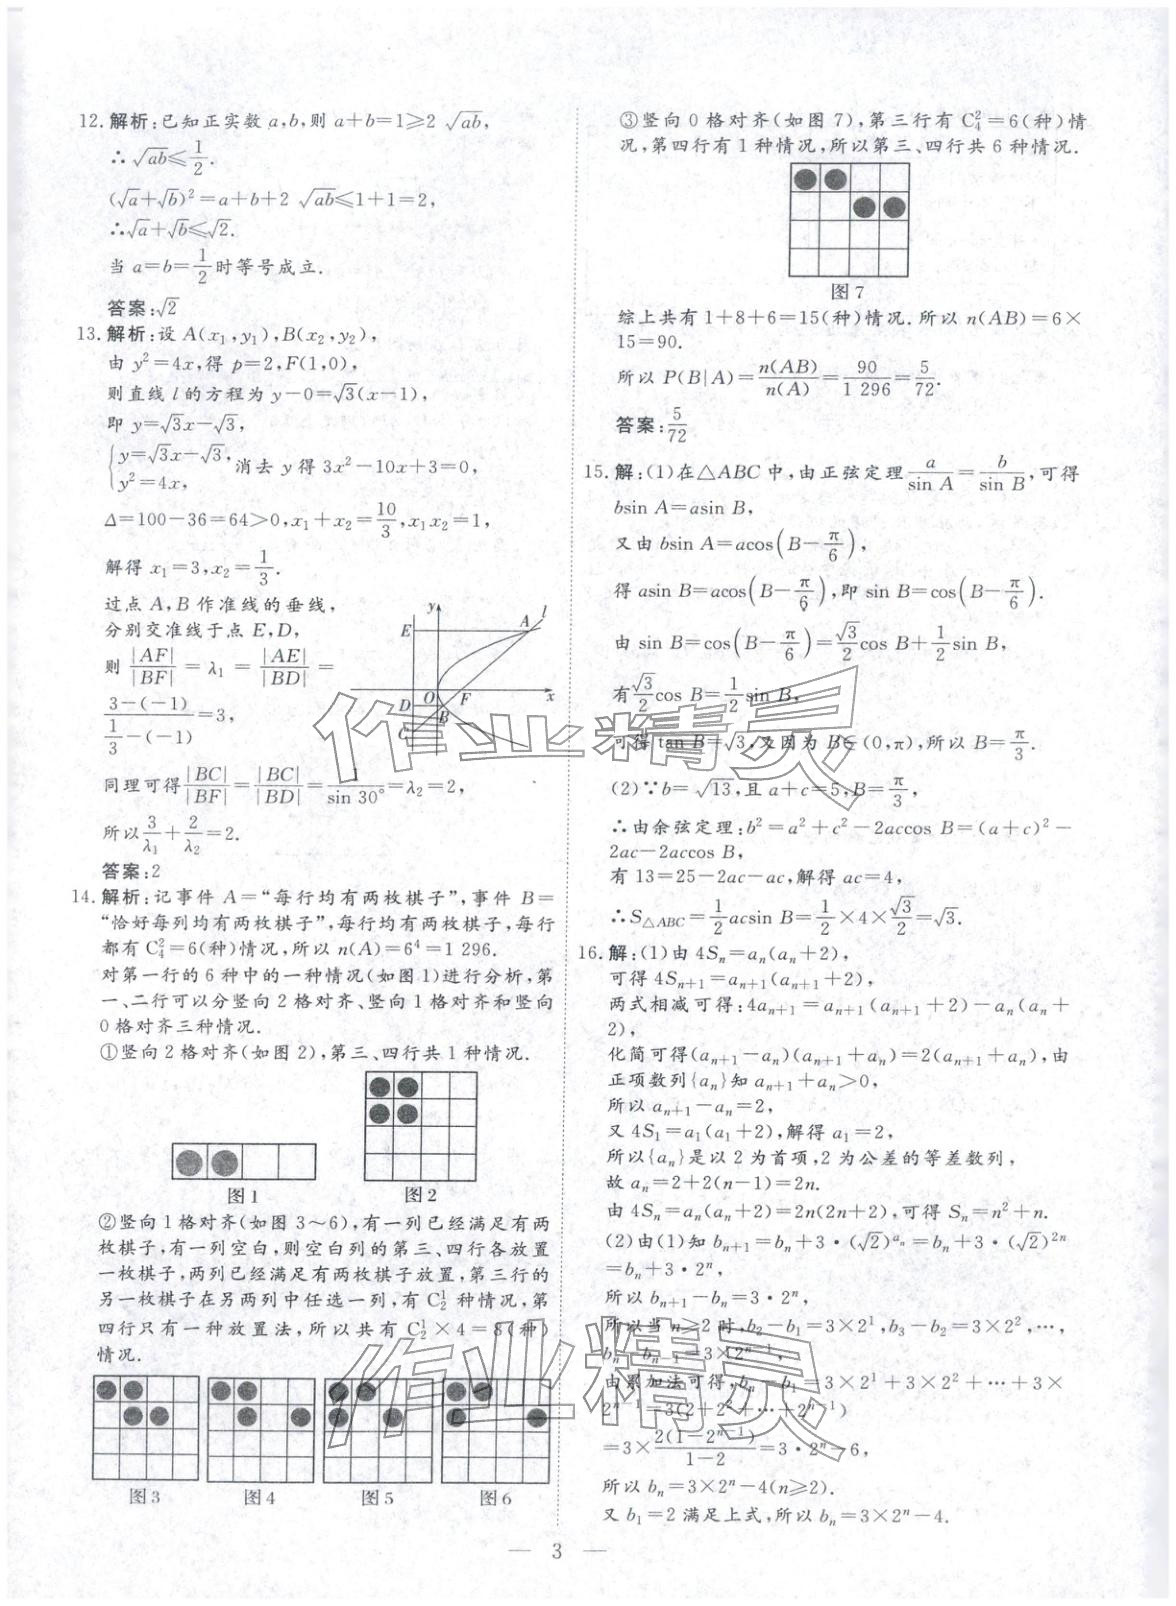 12. 解析:已知正实数 a,b,则 a+b=1≥2 √ab,
∴√ab≤1/2.
(√a+√b)²=a+b+2 √ab≤1+1=2,
∴√a+√b≤√2.
当 a=b=1/2时等号成立.
答案:√2
13. 解析:设 A(x₁,y₁),B(x₂,y₂),
由 y²=4x,得 p=2,F(1,0),
则直线 l 的方程为 y-0=√3(x-1),
即 y=√3x-√3,
{y=√3x-√3, y²=4x, 消去 y 得 3x²-10x+3=0,
Δ=100-36=64>0,x₁+x₂=10/3,x₁x₂=1,
解得 x₁=3,x₂=1/3.
过点 A,B 作准线的垂线,
分别交准线于点 E,D,
则 |AF|/|BF| = λ₁ = |AE|/|BD| =
(3-(-1))/(1/3-(-1))=3,
y
l
E
A
D
O
F
x
B
C
同理可得|BC|/|BF|=|BC|/|BD|=1/sin 30°=λ₂=2,
所以3/λ₁+2/λ₂=2.
答案:2
14. 解析:记事件 A=“每行均有两枚棋子”,事件 B=
“恰好每列均有两枚棋子”,每行均有两枚棋子,每行
都有 C₄²=6(种)情况,所以 n(A)=6⁴=1 296.
对第一行的 6 种中的一种情况(如图 1)进行分析,第
一、二行可以分竖向 2 格对齐、竖向 1 格对齐和竖向
0 格对齐三种情况.
①竖向 2 格对齐(如图 2),第三、四行共 1 种情况.
图 1
图 2
②竖向 1 格对齐(如图 3～6),有一列已经满足有两
枚棋子,有一列空白,则空白列的第三、四行各放置
一枚棋子,两列已经满足有两枚棋子放置,第三行的
另一枚棋子在另两列中任选一列,有 C₂¹ 种情况,第
四行只有一种放置法,所以共有 C₂¹×4=8(种)
情况.
图 3
图 4
图 5
图 6
③竖向 0 格对齐(如图 7),第三行有 C₄²=6(种)情
况,第四行有 1 种情况,所以第三、四行共 6 种情况.
图 7
综上共有 1+8+6=15(种)情况.所以 n(AB)=6×
15=90.
所以 P(B|A)=n(AB)/n(A)=90/1 296=5/72.
答案:5/72
15. 解:(1)在△ABC 中,由正弦定理a/sin A=b/sin B,可得
bsin A=asin B,
又由 bsin A=acos(B-π/6),
得 asin B=acos(B-π/6),即 sin B=cos(B-π/6).
由 sin B=cos(B-π/6)=√3/2cos B+1/2sin B,
有√3/2cos B=1/2sin B,
可得 tan B=√3,又因为 B∈(0,π),所以 B=π/3.
(2)∵b=√13,且 a+c=5,B=π/3,
∴由余弦定理:b²=a²+c²-2accos B=(a+c)²-
2ac-2accos B,
有 13=25-2ac-ac,解得 ac=4,
∴S△ABC=1/2acsin B=1/2×4×√3/2=√3.
16. 解:(1)由 4Sₙ=aₙ(aₙ+2),
可得 4Sₙ₊₁=aₙ₊₁(aₙ₊₁+2),
两式相减可得:4aₙ₊₁=aₙ₊₁(aₙ₊₁+2)-aₙ(aₙ+
2),
化简可得(aₙ₊₁-aₙ)(aₙ₊₁+aₙ)=2(aₙ₊₁+aₙ),由
正项数列{aₙ}知 aₙ₊₁+aₙ>0,
所以 aₙ₊₁-aₙ=2,
又 4S₁=a₁(a₁+2),解得 a₁=2,
所以{aₙ}是以 2 为首项,2 为公差的等差数列,
故 aₙ=2+2(n-1)=2n.
由 4Sₙ=aₙ(aₙ+2)=2n(2n+2),可得 Sₙ=n²+n.
(2)由(1)知 bₙ₊₁=bₙ+3·(√2)^(aₙ)=bₙ+3·(√2)²ⁿ
=bₙ+3·2ⁿ,
所以 bₙ₊₁-bₙ=3·2ⁿ,
所以当 n≥2 时,b₂-b₁=3×2¹,b₃-b₂=3×2²,…,
bₙ-bₙ₋₁=3×2ⁿ⁻¹,
由累加法可得,bₙ-b₁=3×2¹+3×2²+…+3×
2ⁿ⁻¹=3(2+2²+…+2ⁿ⁻¹)
=3×2(1-2ⁿ⁻¹)/(1-2)=3·2ⁿ-6,
所以 bₙ=3×2ⁿ-4(n≥2).
又 b₁=2 满足上式,所以 bₙ=3×2ⁿ-4.
作业精灵
作业精灵
— 3 —